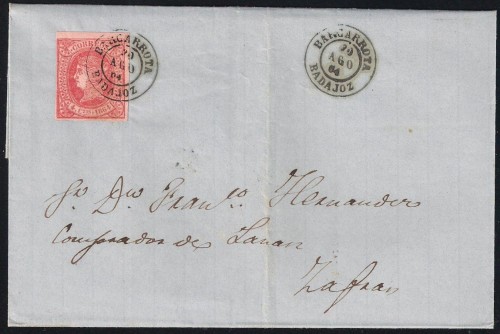 CORREOS
BARCARROTA
20
AGO
64
BADAJOZ
BARCARROTA
20
AGO
64
BADAJOZ
Sr. Dn. Franco. Hernandez
Comprador de Lanas
Zafra